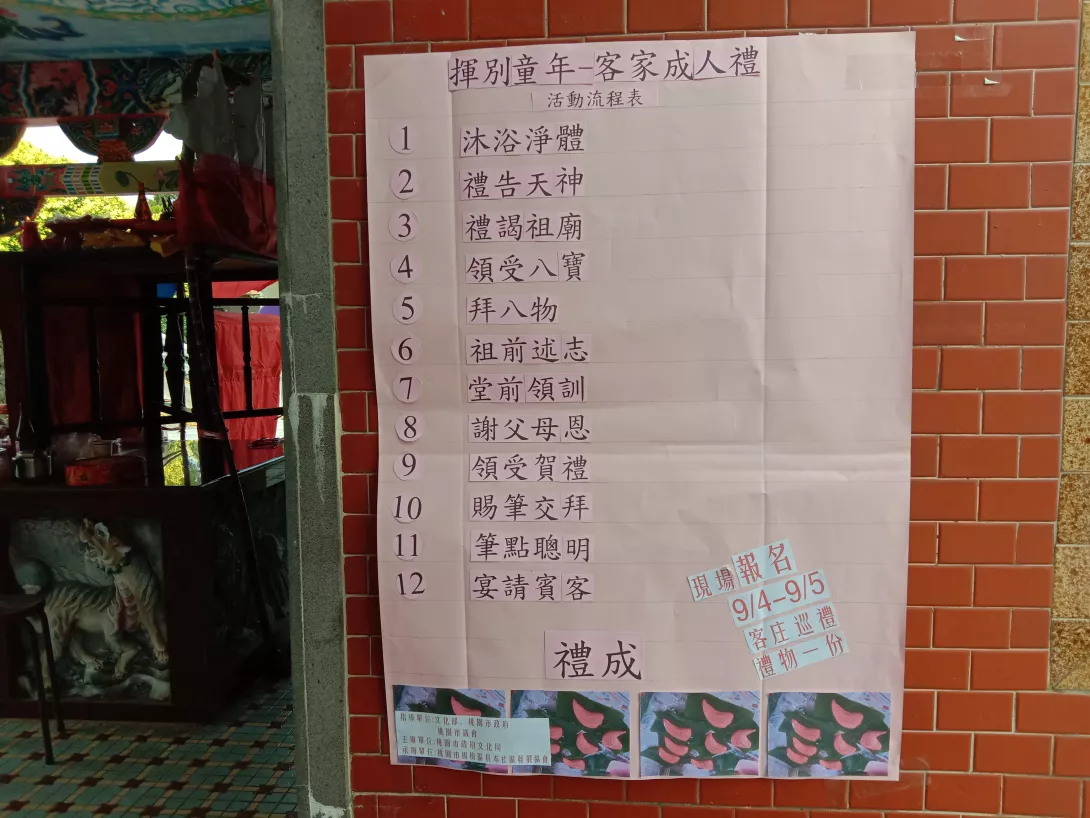 揮別童年-客家成人禮
活動流程表
1 沐浴淨體
2 禮告天神
3 禮謁祖廟
4 領受八寶
5 拜八物
6 祖前述志
7 堂前領訓
8 謝父母恩
9 領受賀禮
10 賜筆交拜
11 筆點聰明
12 宴請賓客
禮成
現場報名
9/4-9/5
客庄巡禮
禮物一份
指導單位:文化部、桃園市政府
桃園市議會
主辦單位:桃園市政府文化局
承辦單位:桃園市